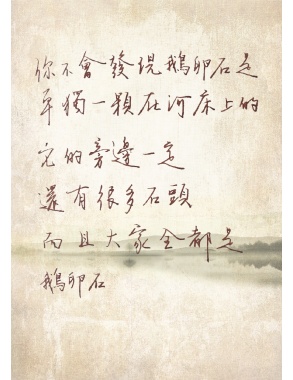 你不會發現鵝卵石是
單獨一顆在河床上的
它的旁邊一定
還有很多石頭
而且大家全都是
鵝卵石